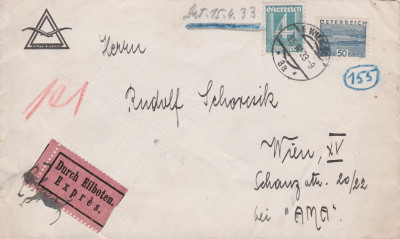 Ant. 15.4.33
ÖSTERREICH
4
ÖSTERREICH
50
WIEN
33-9
8a
155
Herrn
Rudolf Schorcsik
Wien, XV
Schanzstr. 20/22
bei "AMA"
Durch Eilboten.
Exprès.